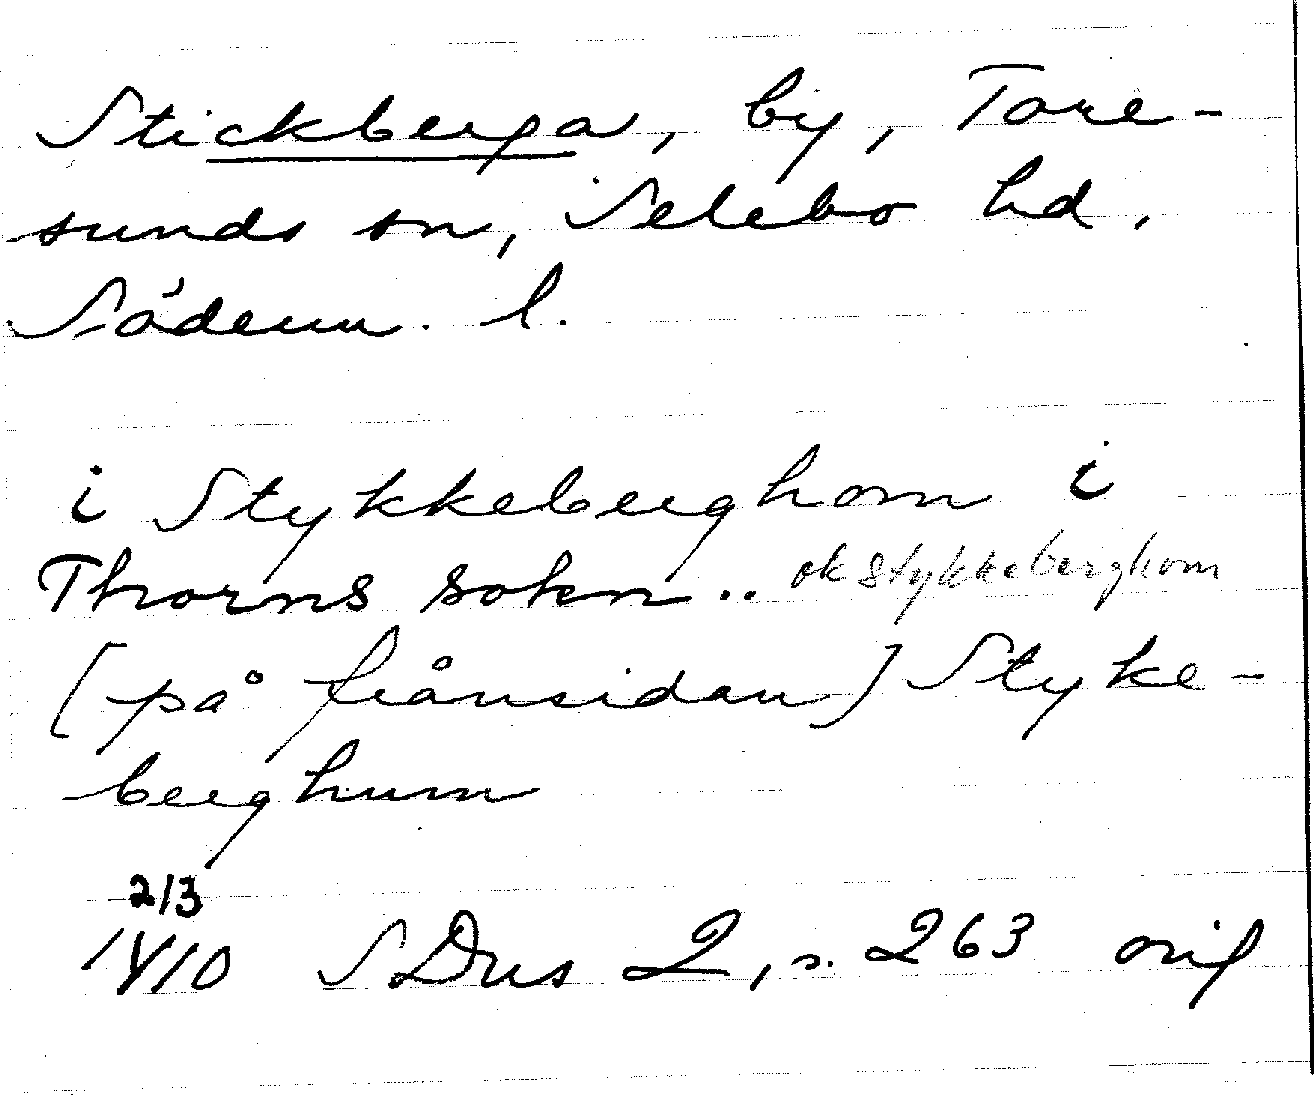 Stickberga, by, Tore-
sunds sn, Selebo hd,
Söderm. l.
i Stykkeberghom i
Thorns sokn.. ok stykkeberghom
[på frånsidan] Styke-
berghum
2/3
1410 SDns 2, s. 263 orig